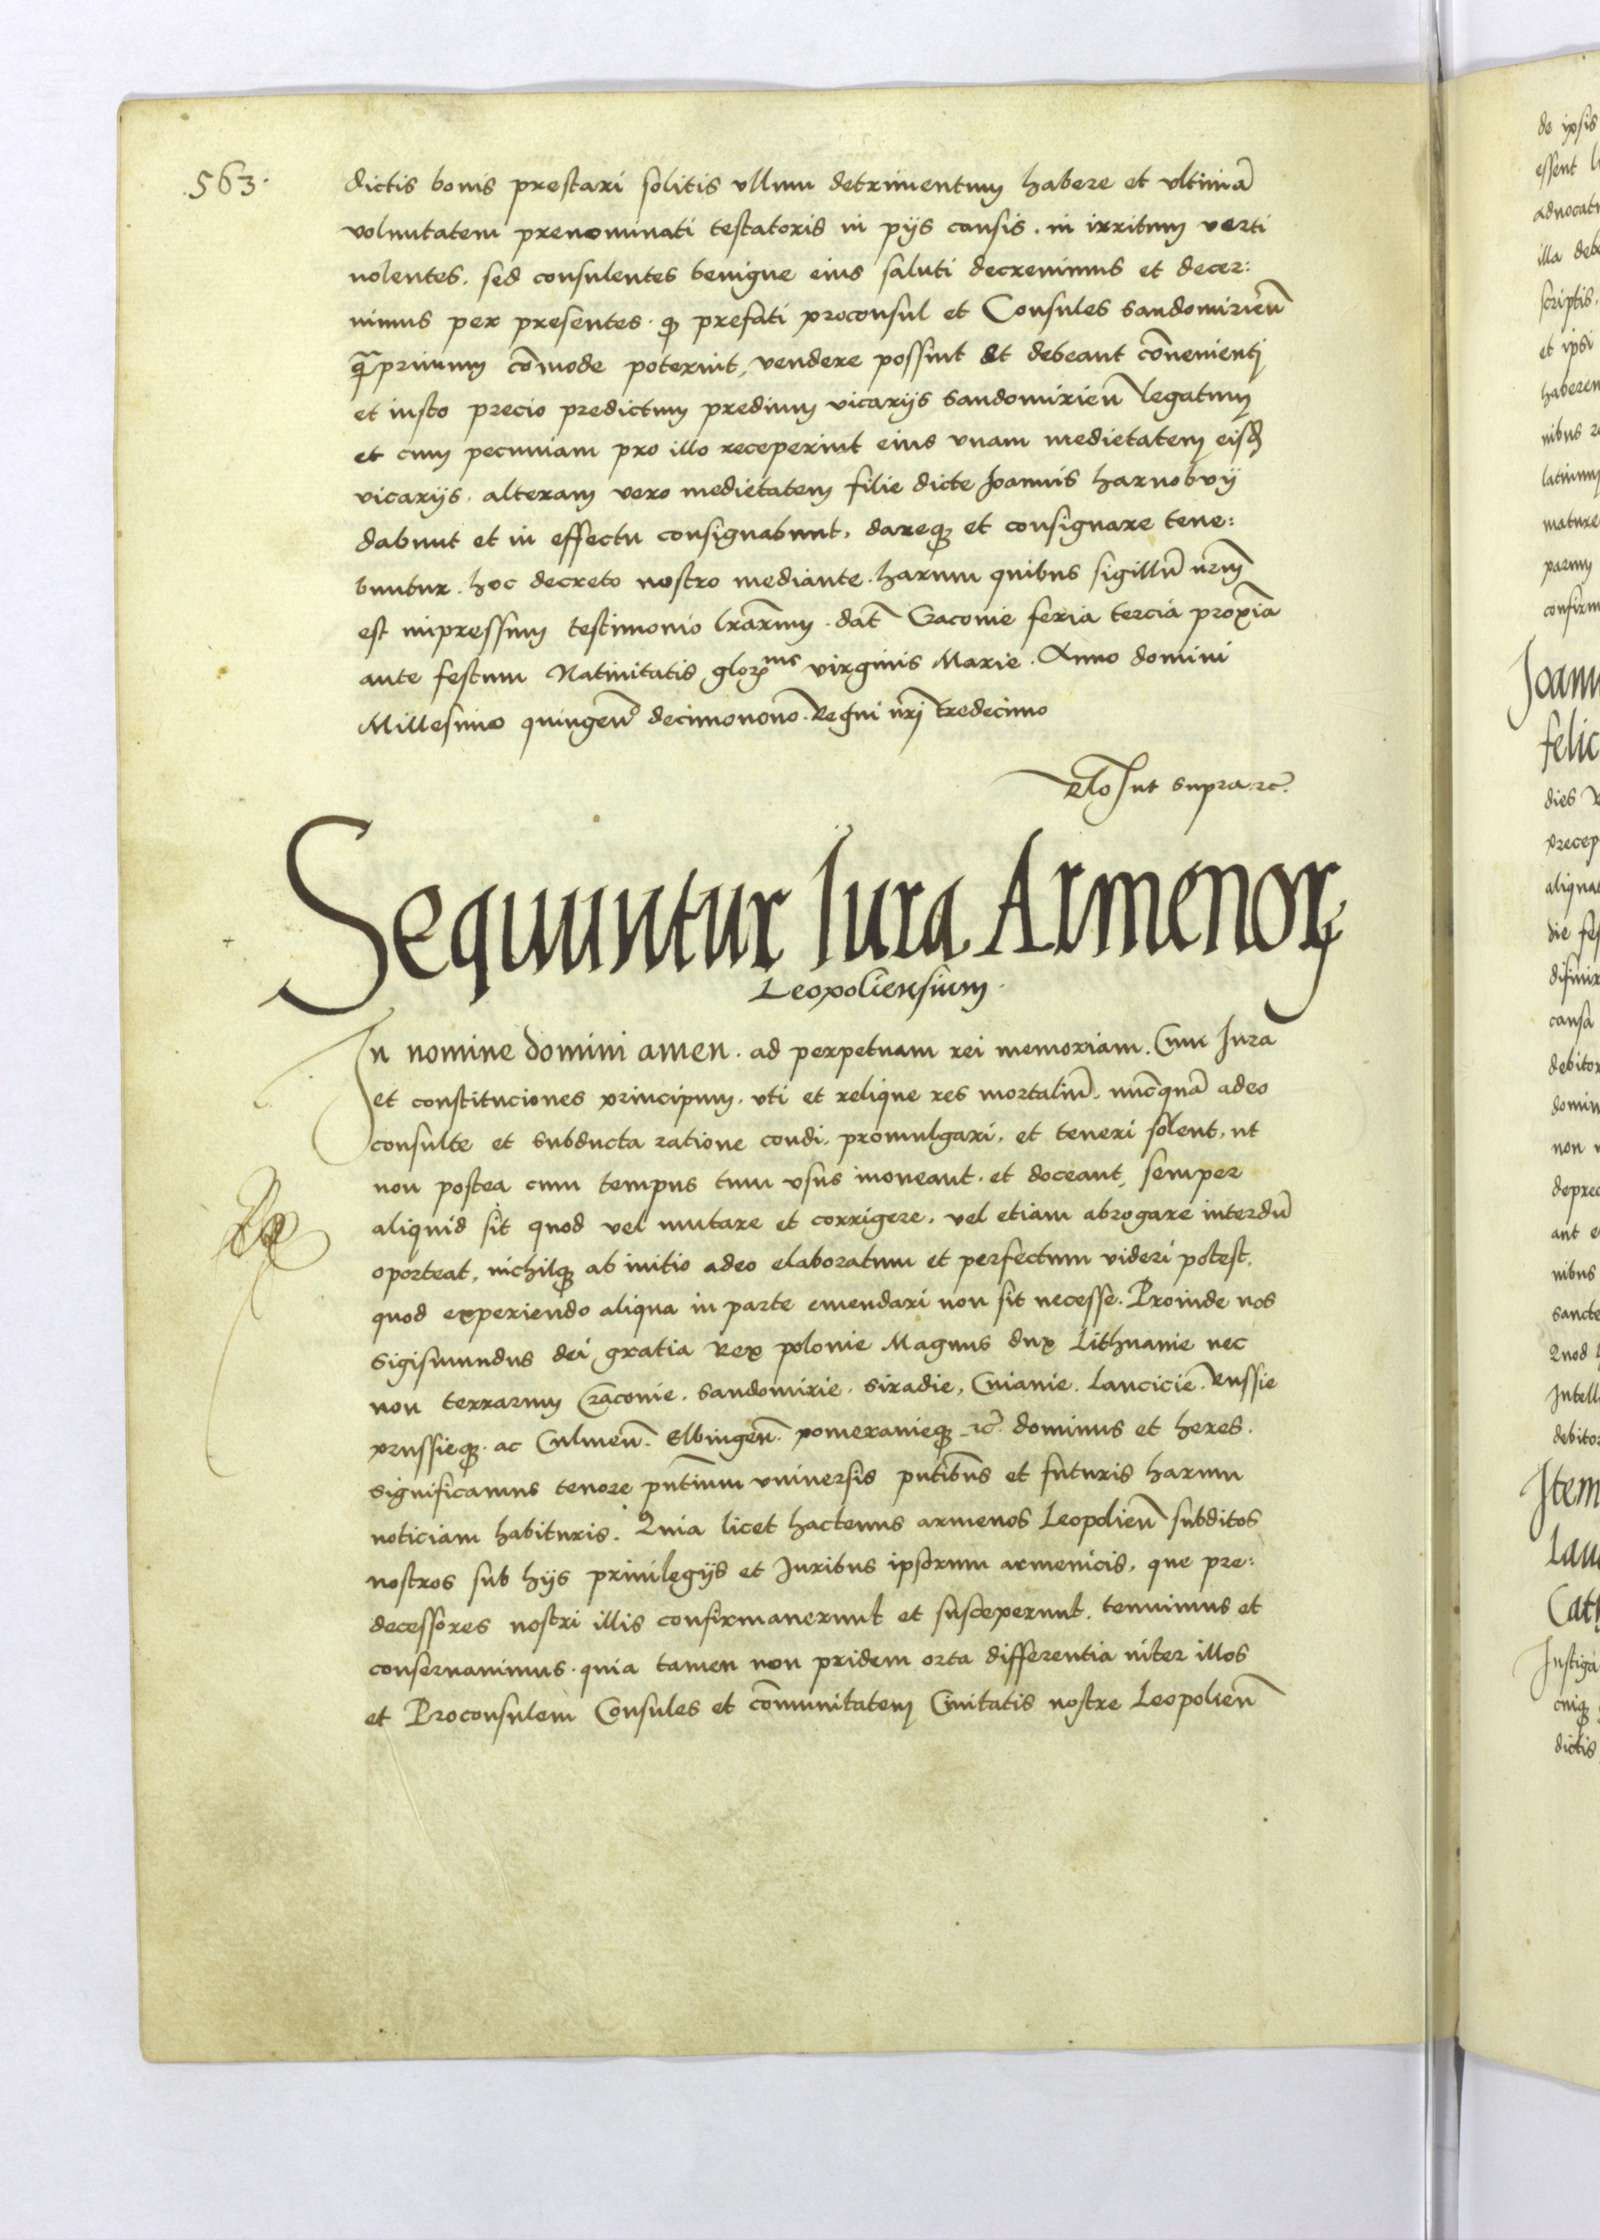 563.
dictis bonis prestari solitis ullum detrimentum habere et ultimā
voluntatem prenominati testatoris in pijs causis. in irritum verti
nolentes. sed consulentes benigne eius saluti decrevimus et decer:
nimus per presentes. qɜ prefati proconsul et Consules Sandomirieñ
q̄primum cōmode poterint, vendere possint et debeant cōvenienti
et iusto precio predictum predium vicarijs Sandomirieñ legatum
et cum pecuniam pro illo receperint eius unam medietatem eisđ
vicarijs. alteram vero medietatem filie dicte Joannis
dabunt et in effectu consignabunt, dareqɜ et consignare tene:
buntur. hoc decreto nostro mediante. harum quibus sigillū nr̄m
est impressum testimonio lr̄arum. dat̄ Cracovie feria tercia proxīa
ante festum Nativitatis virginis Marie. Anno domini
Millesimo quingeñᵒ decimonono. Regni nr̄i tredecimo
ut supra ⁊c̄.
Sequuntur Iura Armenoꝝ
Leopoliensium.
In nomine domini amen. ad perpetuam rei memoriam. Cum Iura
et constituciones principum. uti et relique res mortaliū. nuncquā adeo
consulte et subducta ratione condi. promulgari. et teneri solent. ut
non postea cum tempus tum usus moneant. et doceant, semper
aliquid sit quod vel mutare et corrigere. vel etiam abrogare interdū
oporteat, nichilqɜ ab initio adeo elaboratum et perfectum videri potest.
quod experiendo aliqua in parte emendari non sit necesse. Proinde nos
Sigismundus dei gratia Rex polonie Magnus dux Lithuanie nec
non terrarum Cracovie. Sandomirie. Siradie, Cuiavie. Lancicie. Russie
prussieqɜ. ac Culmeñ. Elbingeñ. pomeranieqɜ ⁊c̄. dominus et heres.
Significamus tenore pn̄tium universis pn̄tibus et futuris harum
noticiam habituris. Quia licet hactenus armenos Leopolieñ subditos
nostros sub hijs privilegijs et Iuribus ipsorum armenicis. que pre:
decessores nostri illis confirmaverunt et susceperunt. tenuimus et
conservavimus. quia tamen non pridem orta differentia inter illos
et Proconsulem Consules et cōmunitatem Civitatis nostre Leopolieñ
de ipsis
essent
illa
scriptis.
et ipsi
nibus
parum
felic
dies
die
causa
non
nibus
Item
Cath
dictis